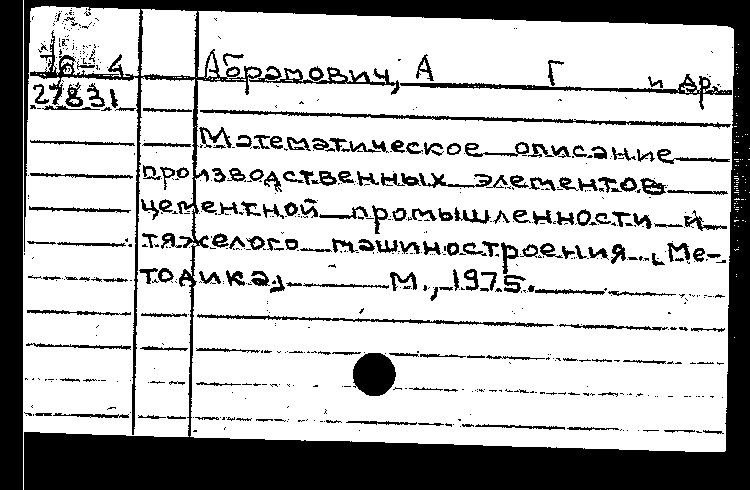 76-4 Абрамович, А Г и др.
27831
Математическое описание
производственных элементов
цементной промышленности и
тяжелого машиностроения. [Ме-
тодика] М., 1975.